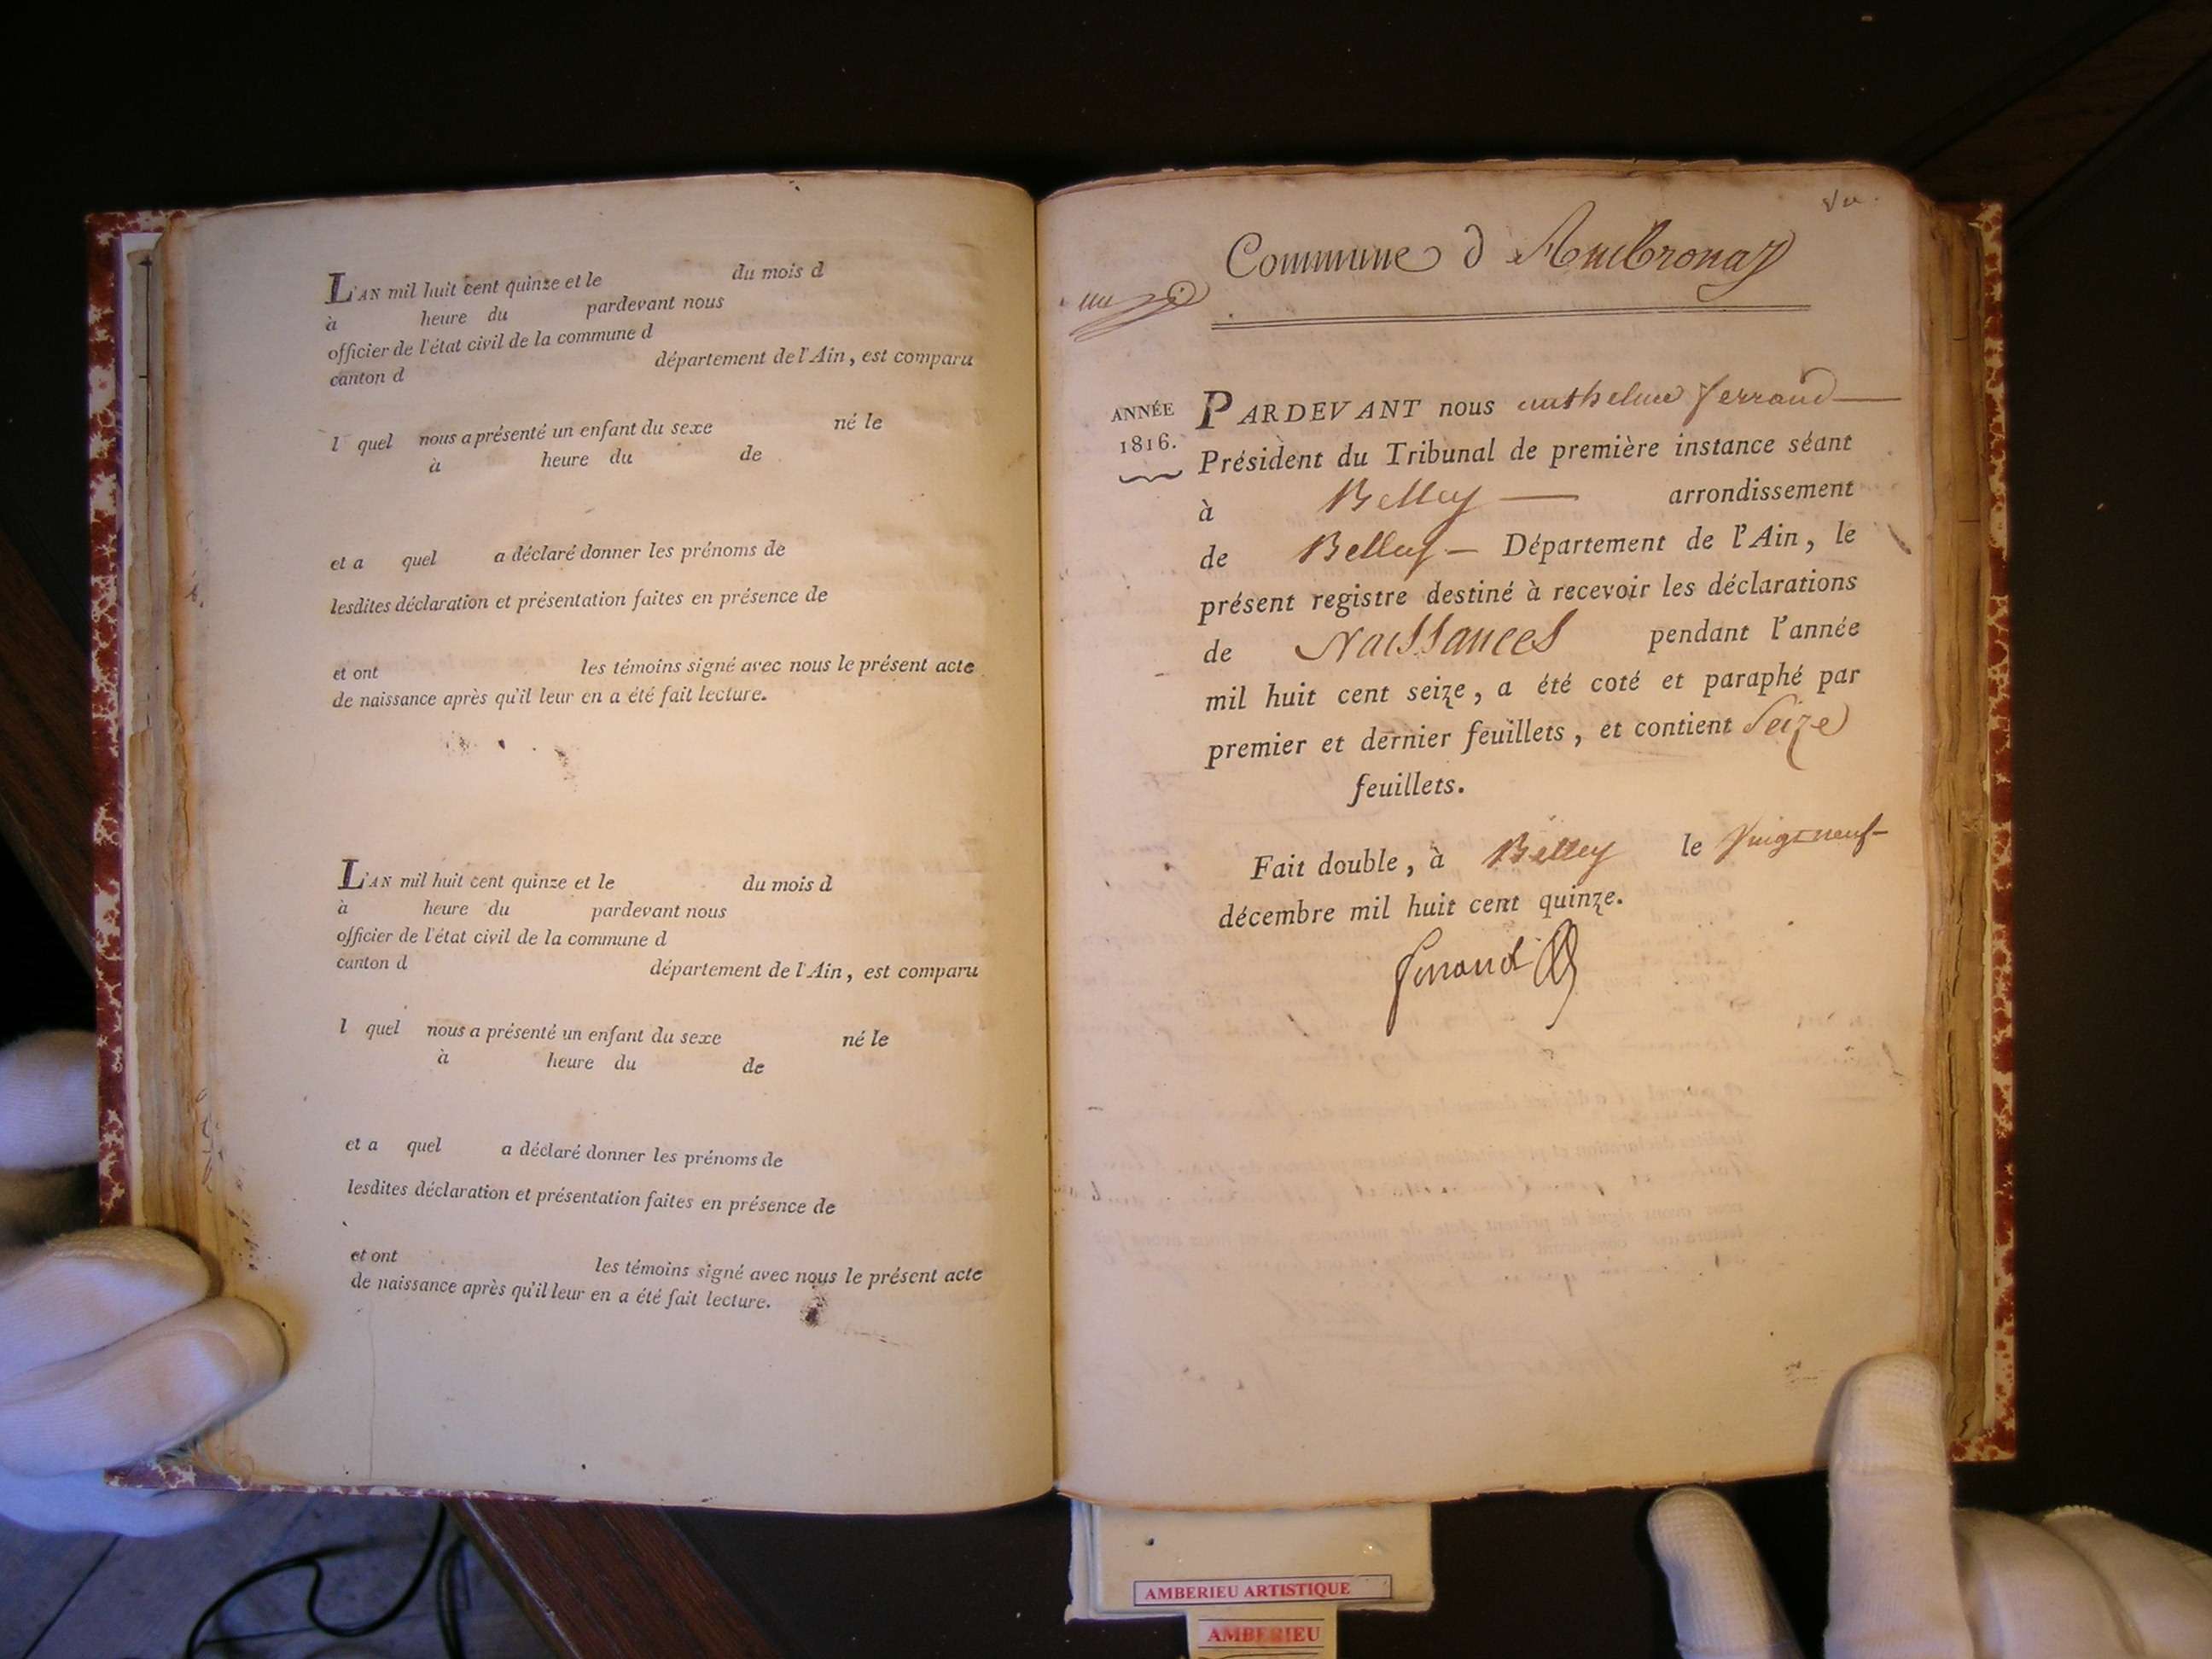 L'AN mil huit cent quinze et le du mois d
à heure du pardevant nous
officier de l'état civil de la commune d
canton d département de l'Ain, est comparu
l quel nous a présenté un enfant du sexe né le
à heure du de
et a quel a déclaré donner les prénoms de
lesdites déclaration et présentation faites en présence de
et ont les témoins signé avec nous le présent acte
de naissance après qu'il leur en a été fait lecture.
L'AN mil huit cent quinze et le du mois d
à heure du pardevant nous
officier de l'état civil de la commune d
canton d département de l'Ain, est comparu
l quel nous a présenté un enfant du sexe né le
à heure du de
et a quel a déclaré donner les prénoms de
lesdites déclaration et présentation faites en présence de
et ont les témoins signé avec nous le présent acte
de naissance après qu'il leur en a été fait lecture.
Commune d Ambronay
ANNÉE
1816.
PARDEVANT nous anthelme ferrand
Président du Tribunal de première instance séant
à Belley arrondissement
de Belley Département de l'Ain, le
présent registre destiné à recevoir les déclarations
de Naissances pendant l'année
mil huit cent seize, a été coté et paraphé par
premier et dernier feuillets, et contient Seize
feuillets.
Fait double, à Belley le Vingt neuf
décembre mil huit cent quinze.
ferrand
AMBERIEU ARTISTIQUE
AMBERIEU